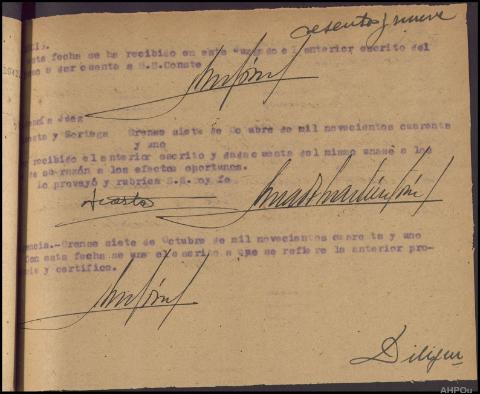 esentos y nueve
esta fecha se ha recibido en este Juzgado el anterior escrito del
y dar cuenta a S.S. Conste
Juez
y Noriega Orense siete de Octubre de mil novecientos cuarenta
y uno
recibido el anterior escrito y dada cuenta del mismo unase a los
de su razón a los efectos oportunos.
lo proveyó y rubrica S.S. doy fe
encia.-Orense siete de Octubre de mil novecientos cuarenta y uno
on esta fecha se une el escrito a que se refiere la anterior pro-
cia y certifico.
Diligen
AHPOu